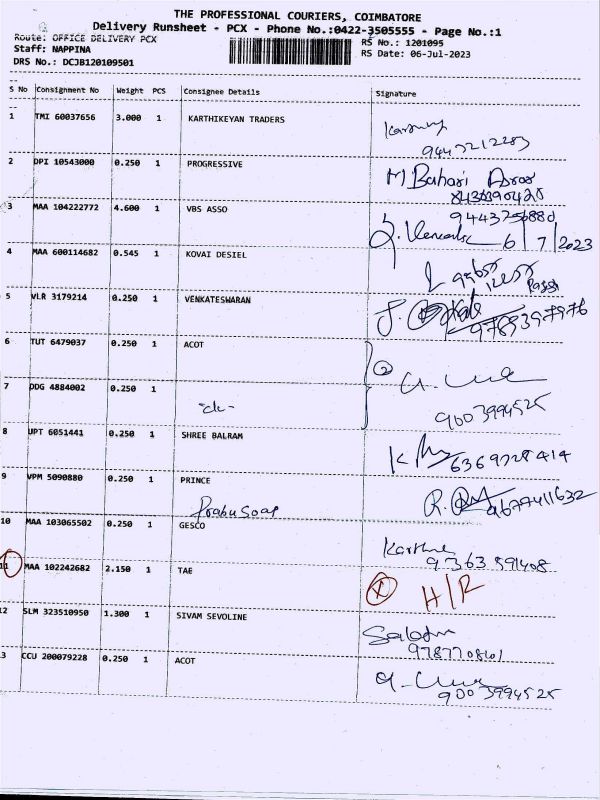 THE PROFESSIONAL COURIERS, COIMBATORE
Delivery Runsheet - PCX - Phone No.:0422-3505555 - Page No.:1
Route: OFFICE DELIVERY PCX
RS No.: 1201095
Staff: NAPPINA
RS Date: 06-Jul-2023
DRS No.: DCJB120109501
S No Consignment No Weight PCS Consignee Details Signature
1 TMI 60037656 3.000 1 KARTHIKEYAN TRADERS
9443212283
2 DPI 10543000 0.250 1 PROGRESSIVE M Bahari
3 MAA 104222772 4.600 1 VBS ASSO
6/7/2023
4 MAA 600114682 0.545 1 KOVAI DESIEL
5 VLR 3179214 0.250 1 VENKATESWARAN
6 TUT 6479037 0.250 1 ACOT
2
7 DDG 4884002 0.250 1
9003994525
8 UPT 6051441 0.250 1 SHREE BALRAM
6369728414
9 VPM 5090880 0.250 1 PRINCE
9677411632
Prabu Soap
10 MAA 103065502 0.250 1 GESCO
Karthi
9363591408
11 MAA 102242682 2.150 1 TAE H/R
12 SLM 323510950 1.300 1 SIVAM SEVOLINE
3 CCU 200079228 0.250 1 ACOT
9003994525